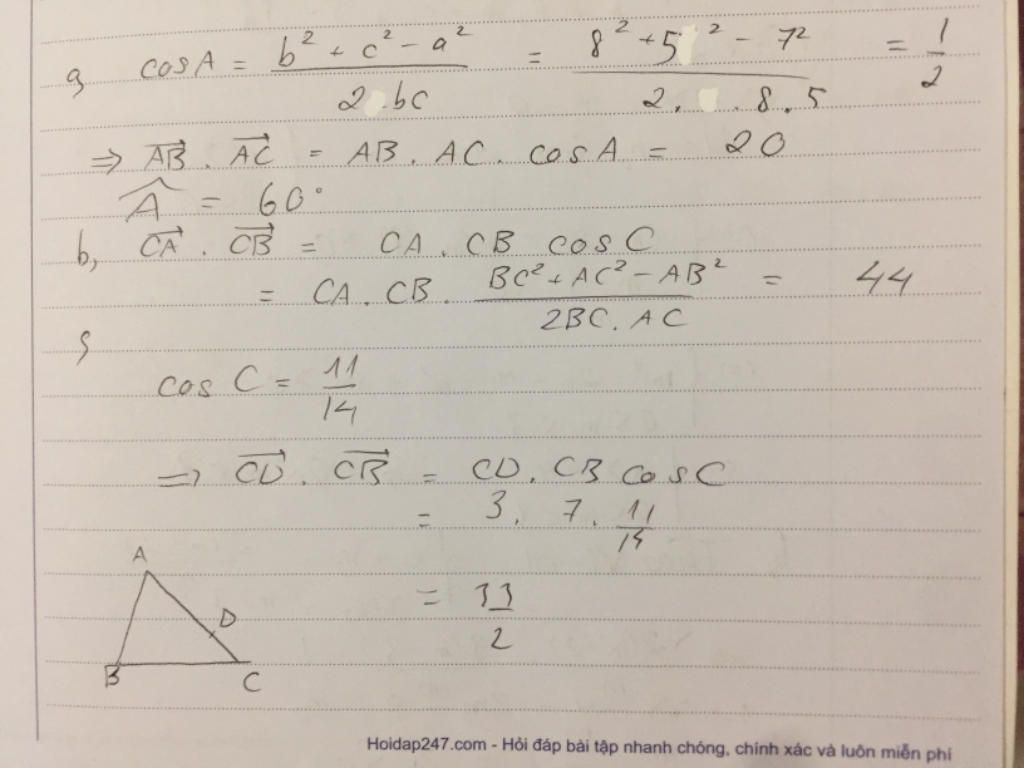 a, cosA = \frac{b² + c² - a²}{2 . bc} = \frac{8² + 5² - 7²}{2 . 8 . 5} = \frac{1}{2}
⇒ \overrightarrow{AB} . \overrightarrow{AC} = AB . AC . cosA = 20
\widehat{A} = 60°
b, \overrightarrow{CA} . \overrightarrow{CB} = CA . CB cosC
= CA . CB . \frac{BC² + AC² - AB²}{2BC . AC} = 44
cos C = \frac{11}{14}
⇒ \overrightarrow{CD} . \overrightarrow{CB} = CD . CB cosC
= 3 . 7 . \frac{11}{14}
= \frac{33}{2}
A
D
B C
Hoidap247.com - Hỏi đáp bài tập nhanh chóng, chính xác và luôn miễn phí